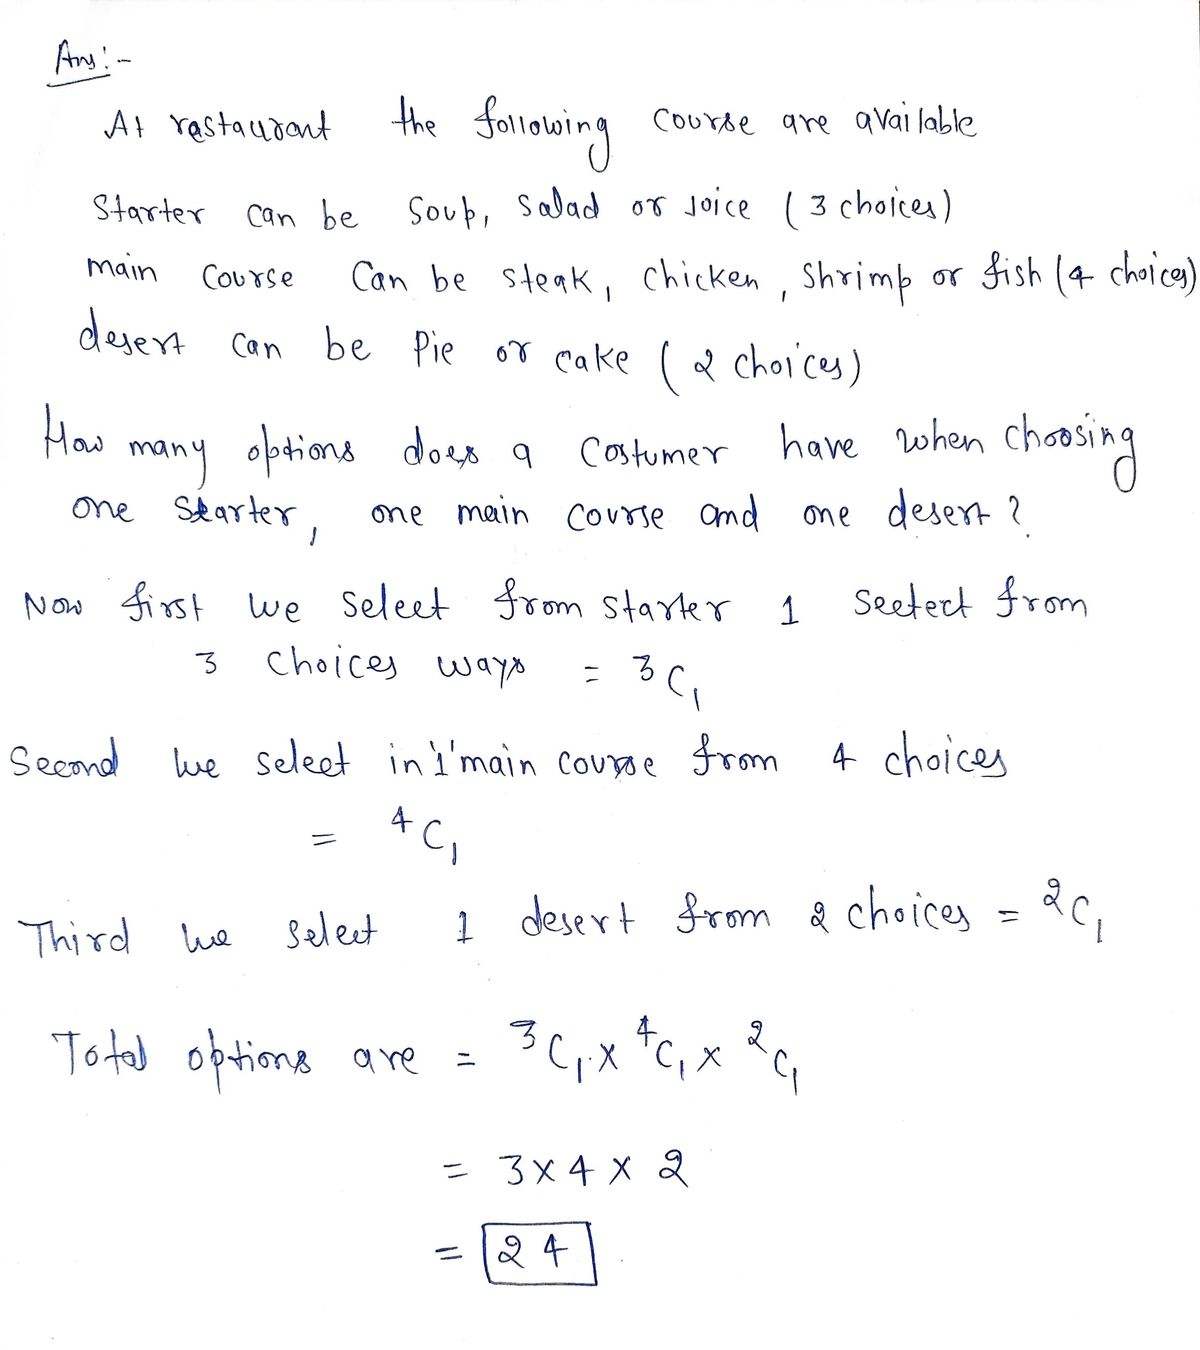 Ans:-
At rastaurant the following course are available
Starter can be Soup, Salad or Joice (3 choices)
main Course Can be steak, chicken, Shrimp or fish (4 choices)
desert can be Pie or cake (2 choices)
How many options does a Costumer have when choosing
one Starter, one main course and one desert?
Now first we select from starter 1 seetect from
3 choices ways = 3C₁
Second we select in '1' main course from 4 choices
= ⁴C₁
Third we select 1 desert from 2 choices = ²C₁
Total options are = ³C₁ x ⁴C₁ x ²C₁
= 3 x 4 x 2
= 24